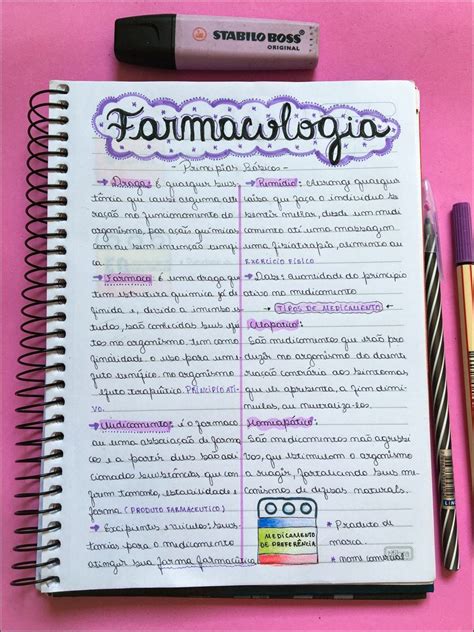 STABILO BOSS
ORIGINAL
Farmacologia
- Princípios Básicos -
→ Droga: é qualquer subs
tância que causa alguma alte
ração no funcionamento do
organismo, por ações químicas
com ou sem intenção benéfi
ca.
→ Fármaco: é uma droga que
tem estrutura química já de
finida e, devido a imensos es
tudos, são conhecidos seus efei
tos no organismo, tem como
finalidade o uso para um e
feito benéfico no organismo
efeito terapêutico. PRINCÍPIO ATI-
VO.
→ Medicamento: é o fármaco
ou uma associação de fárma
cos e a partir deles são adi
cionadas substâncias que con
feram tamanho, estabilidade e
forma (PRODUTO FARMACÊUTICO)
→ Excipientes e veículos: subs
tâncias para o medicamento
atingir sua forma farmacêutica
→ Remédio: abrange qualquer
coisa que faça o indivíduo se
sentir melhor, desde um medi
camento até uma massagem
uma fisioterapia, alimento ou
EXERCÍCIO FÍSICO
→ Dose: Quantidade do princípio
ativo no medicamento
TIPOS DE MEDICAMENTO
Alopático:
São medicamentos que irão pro
duzir no organismo do doente
reação contrária aos sintomas
que ele apresenta, a fim dimi
nuí-los ou neutralizá-los.
Homeopático:
São medicamentos não agressi
vos, que estimulam o organismo
a reagir, fortalecendo seus me
canismos de defesas naturais.
MEDICAMENTO
DE PREFERÊNCIA
* Produto de
marca.
* nome comercial